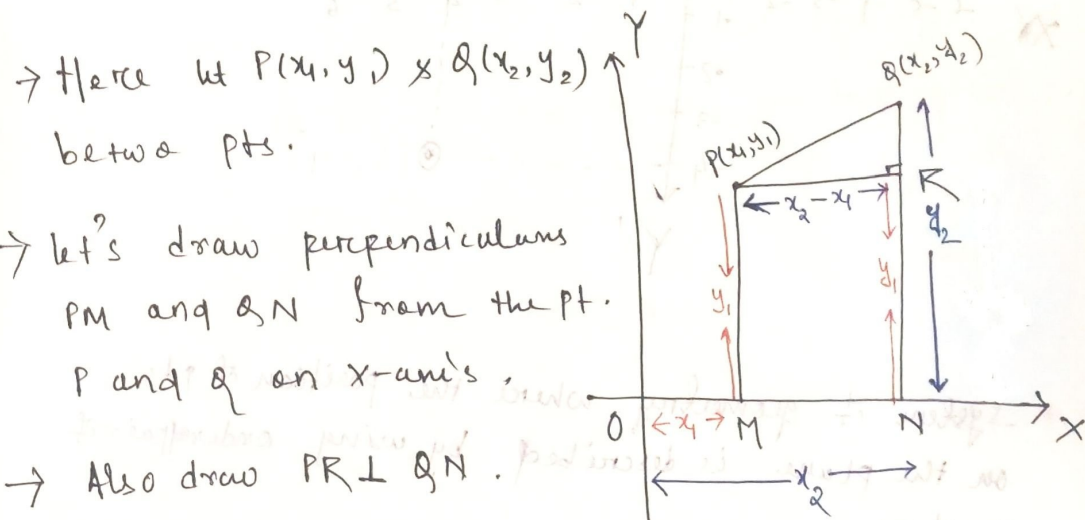 → Here let P(x₁, y₁) & Q(x₂, y₂)
be two pts.
→ let's draw perpendiculars
PM and QN from the pt.
P and Q on X-axis.
→ Also draw PR ⊥ QN.
Y
Q(x₂, y₂)
P(x₁, y₁)
R
x₂ - x₁
y₂
y₁
y₁
O
x₁
M
N
X
x₂